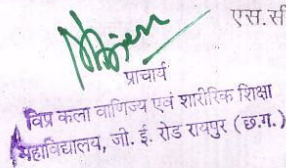 एस.सी
प्राचार्य
विप्र कला वाणिज्य एवं शारीरिक शिक्षा
महाविद्यालय, जी. ई. रोड रायपुर (छ.ग.)